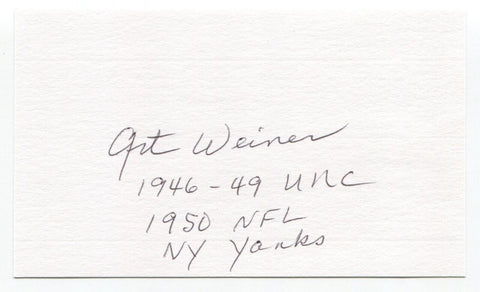 Art Weiner
1946-49 UNC
1950 NFL
NY Yanks